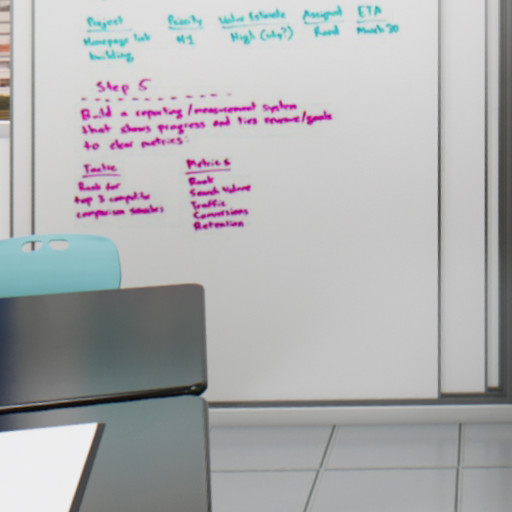 Project Priority Value Estimate Assigned ETA
Homepage link building #1 High (why?) Rand March 30
Step 5
Build a reporting/measurement system
that shows progress and ties revenue/goals
to clear metrics:
Tactic Metrics
Rank for
top 3 competitor
comparison searches
Rank
Search Volume
Traffic
Conversions
Retention